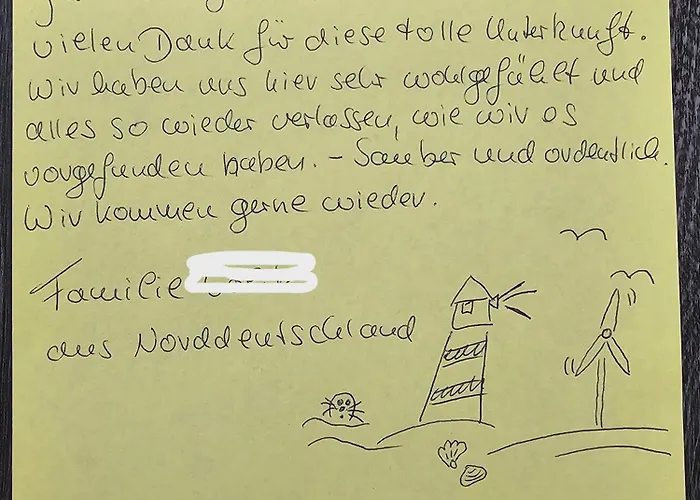 vielen Dank für diese tolle Unterkunft.
Wir haben uns hier sehr wohlgefühlt und
alles so wieder verlassen, wie wir es
vorgefunden haben. – Sauber und ordentlich.
Wir kommen gerne wieder.
Familie
aus Norddeutschland